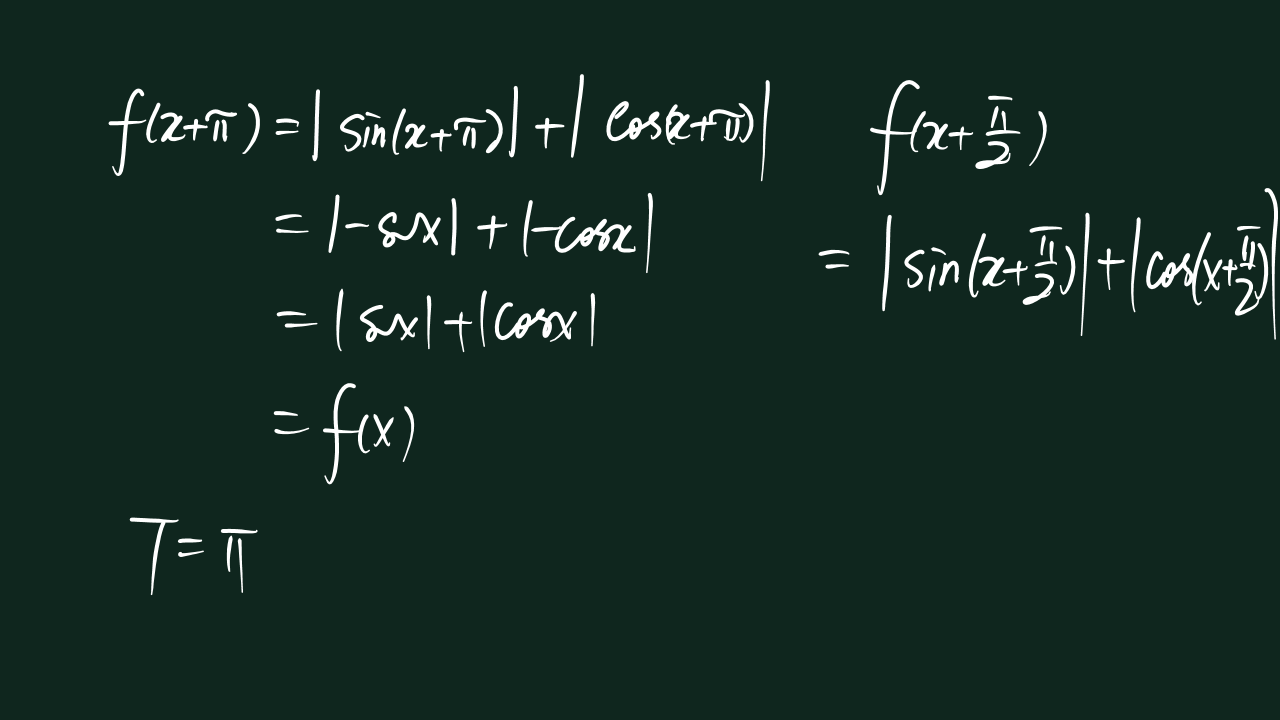 f(x+π) = |sin(x+π)| + |cos(x+π)|
= |-sinx| + |-cosx|
= |sinx| + |cosx|
= f(x)
T = π
f(x+π/2)
= |sin(x+π/2)| + |cos(x+π/2)|